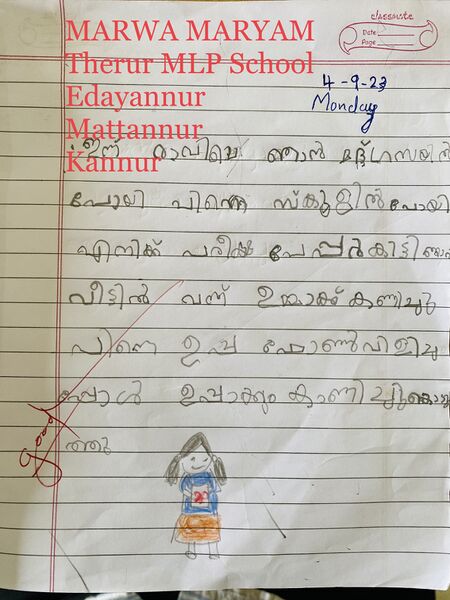 classmate
Date
Page
MARWA MARYAM
Therur MLP School
Edayannur
Mattannur
Kannur
4-9-23
Monday
ഇന്ന് രാവിലെ ഞാൻ മദ്രസയിൽ
പോയി പിന്നെ സ്കൂളിൽ പോയി
എനിക്ക് പരീക്ഷ പേപ്പർ കിട്ടി ഞാൻ
വീട്ടിൽ വന്ന് ഉമ്മാക്ക് കാണിച്ചു
പിന്നെ ഉപ്പ ഫോൺ വിളിച്ച
പ്പോൾ ഉപ്പാക്കും കാണിച്ചു കൊടു
ത്തു
good